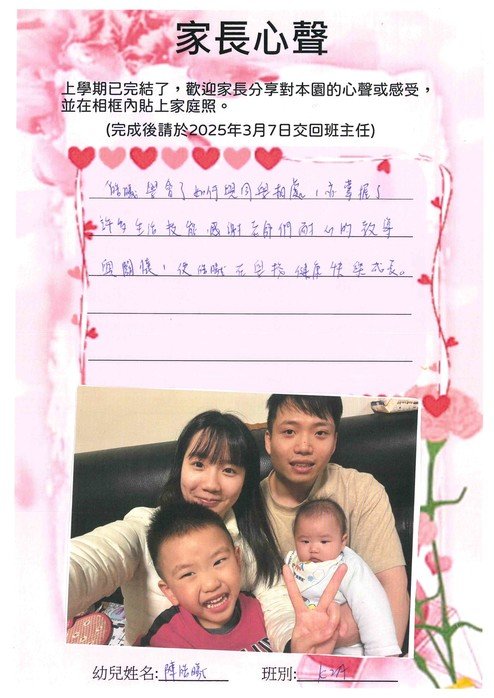 家長心聲
上學期已完結了，歡迎家長分享對本園的心聲或感受，
並在相框內貼上家庭照。
(完成後請於2025年3月7日交回班主任)
學會了如何與同學相處，亦掌握了
許多生活技能。感謝老師們耐心的教導
與關懷，使 在學指健康快樂成長。
幼兒姓名: 陳
班別: K2A